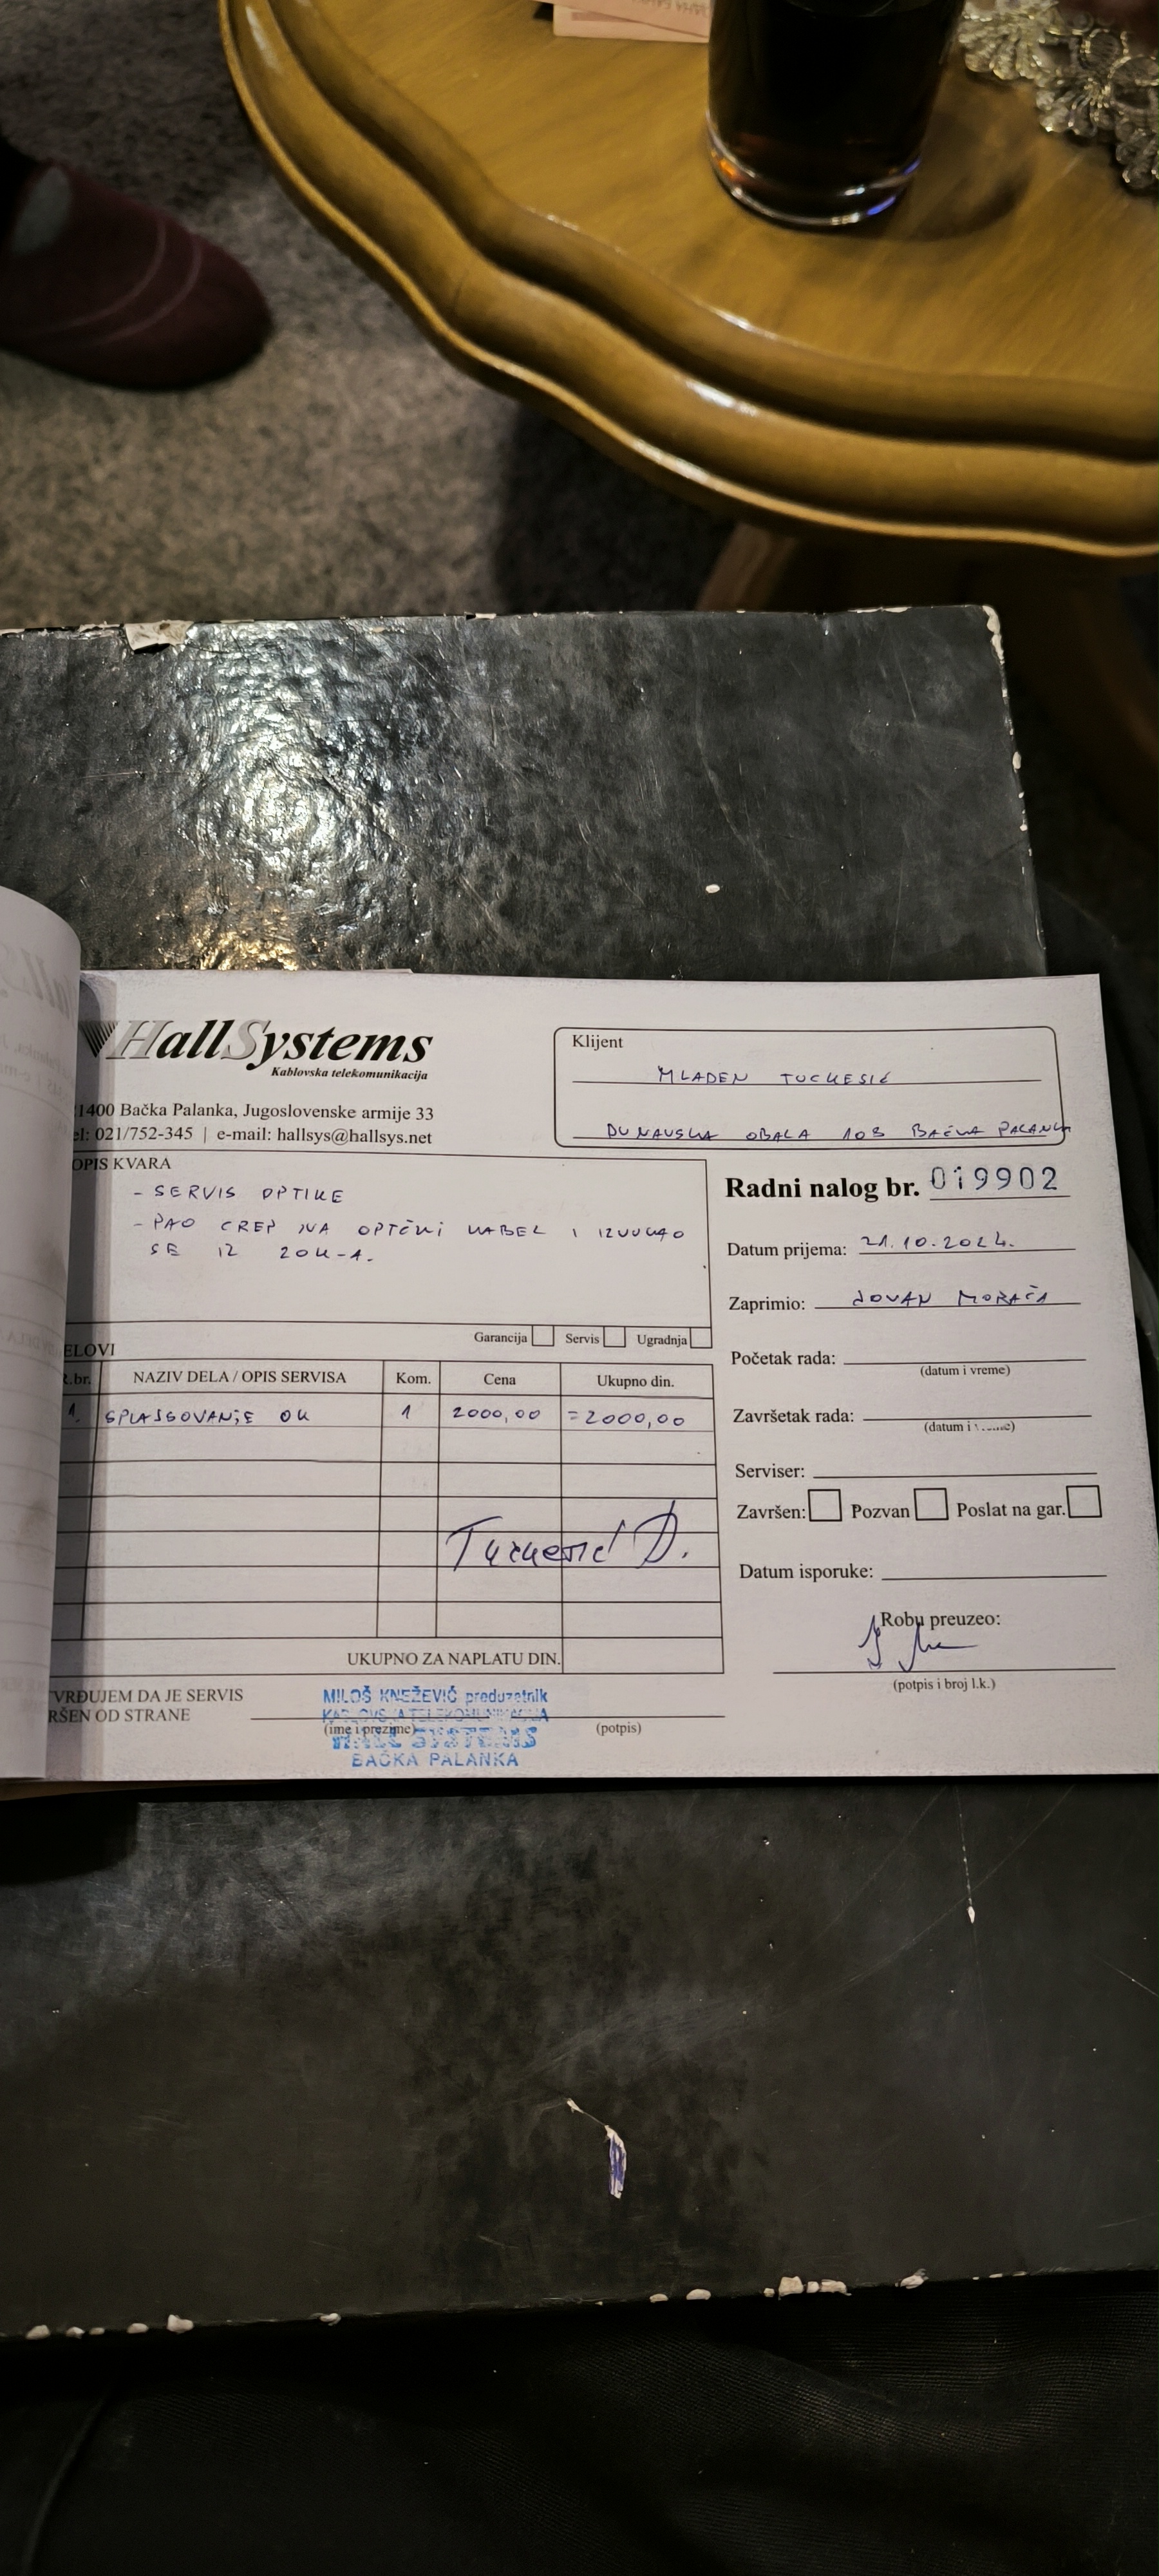 HallSystems
Kablovska telekomunikacija
1400 Bačka Palanka, Jugoslovenske armije 33
el: 021/752-345 | e-mail: hallsys@hallsys.net
Klijent
MLADEN TUCKESIĆ
DUNAVSKA OBALA 103 BAČKA PALANKA
OPIS KVARA
- SERVIS OPTIKE
- PAO CREP NA OPTČKI KABEL I IZVUKAO
SE IZ ZOK-A.
Garancija Servis Ugradnja
Radni nalog br. 019902
Datum prijema: 21.10.2024.
Zaprimio: JOVAN MORAČA
Početak rada:
(datum i vreme)
Završetak rada:
(datum i vreme)
Serviser:
Završen: Pozvan Poslat na gar.
Datum isporuke:
Robu preuzeo:
(potpis i broj l.k.)
ELOVI
.br. NAZIV DELA / OPIS SERVISA Kom. Cena Ukupno din.
1. SPLAJSOVANJE OK 1 2000,00 =2000,00
UKUPNO ZA NAPLATU DIN.
VRĐUJEM DA JE SERVIS
RŠEN OD STRANE
(ime i prezime) (potpis)
MILOŠ KNEŽEVIĆ preduzetnik
KABLOVSKA TELEKOMUNIKACIJA
HALL SYSTEMS
BAČKA PALANKA